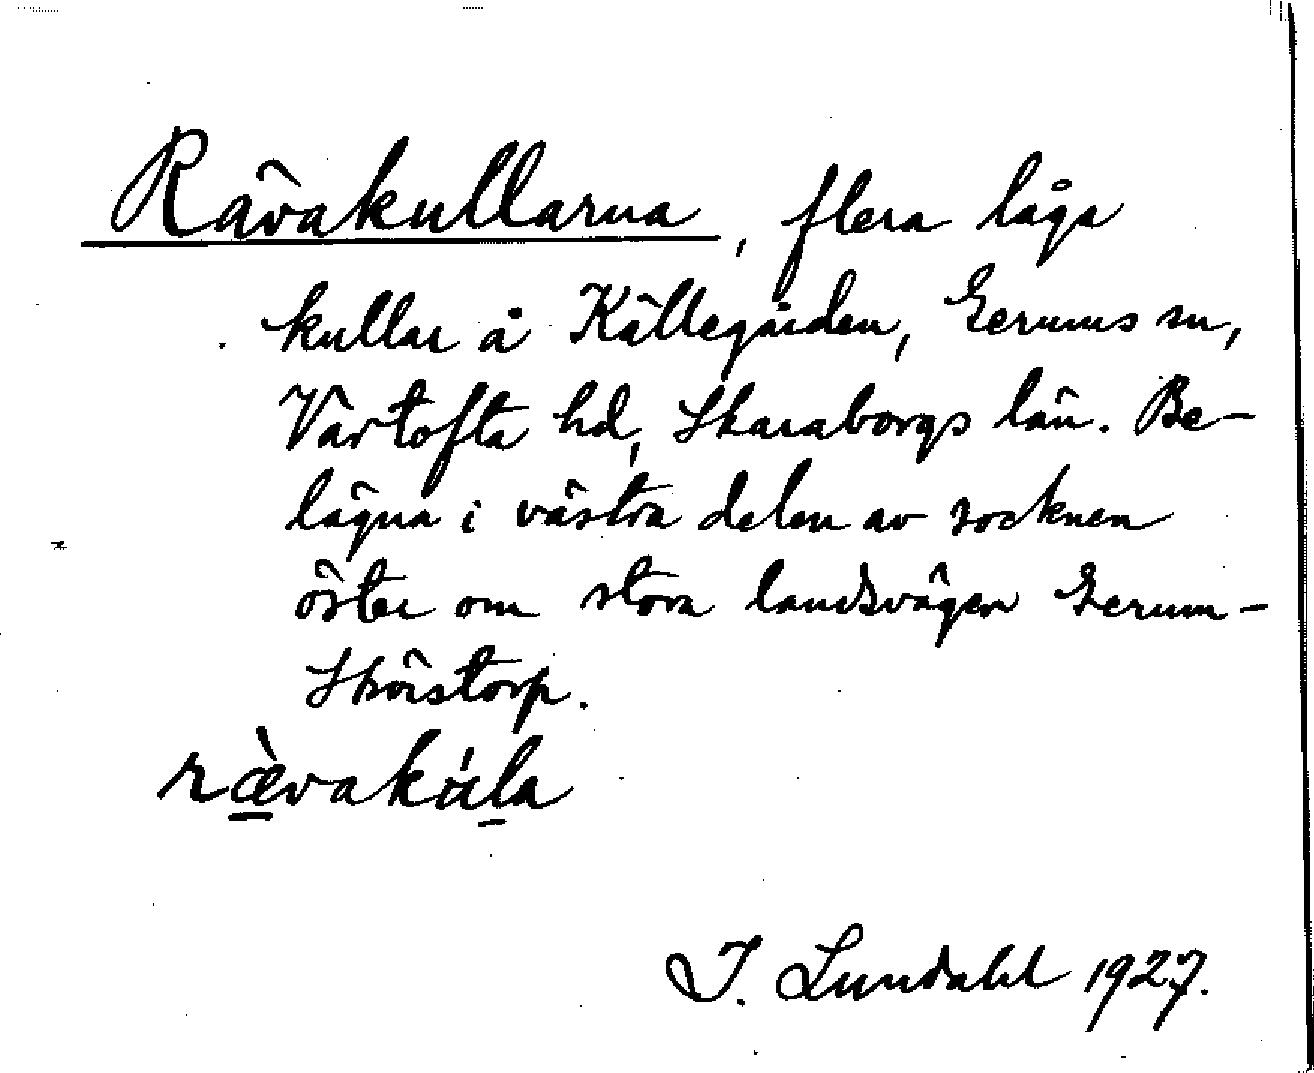 Rävakullarna, flera låga
kullar å Källegården, Gerums sn,
Vartofta hd, Skaraborgs län. Be-
lägna i västra delen av socknen
öster om stora landsvägen Gerum-
Skörstorp.
rævakula
I. Lundahl 1927.